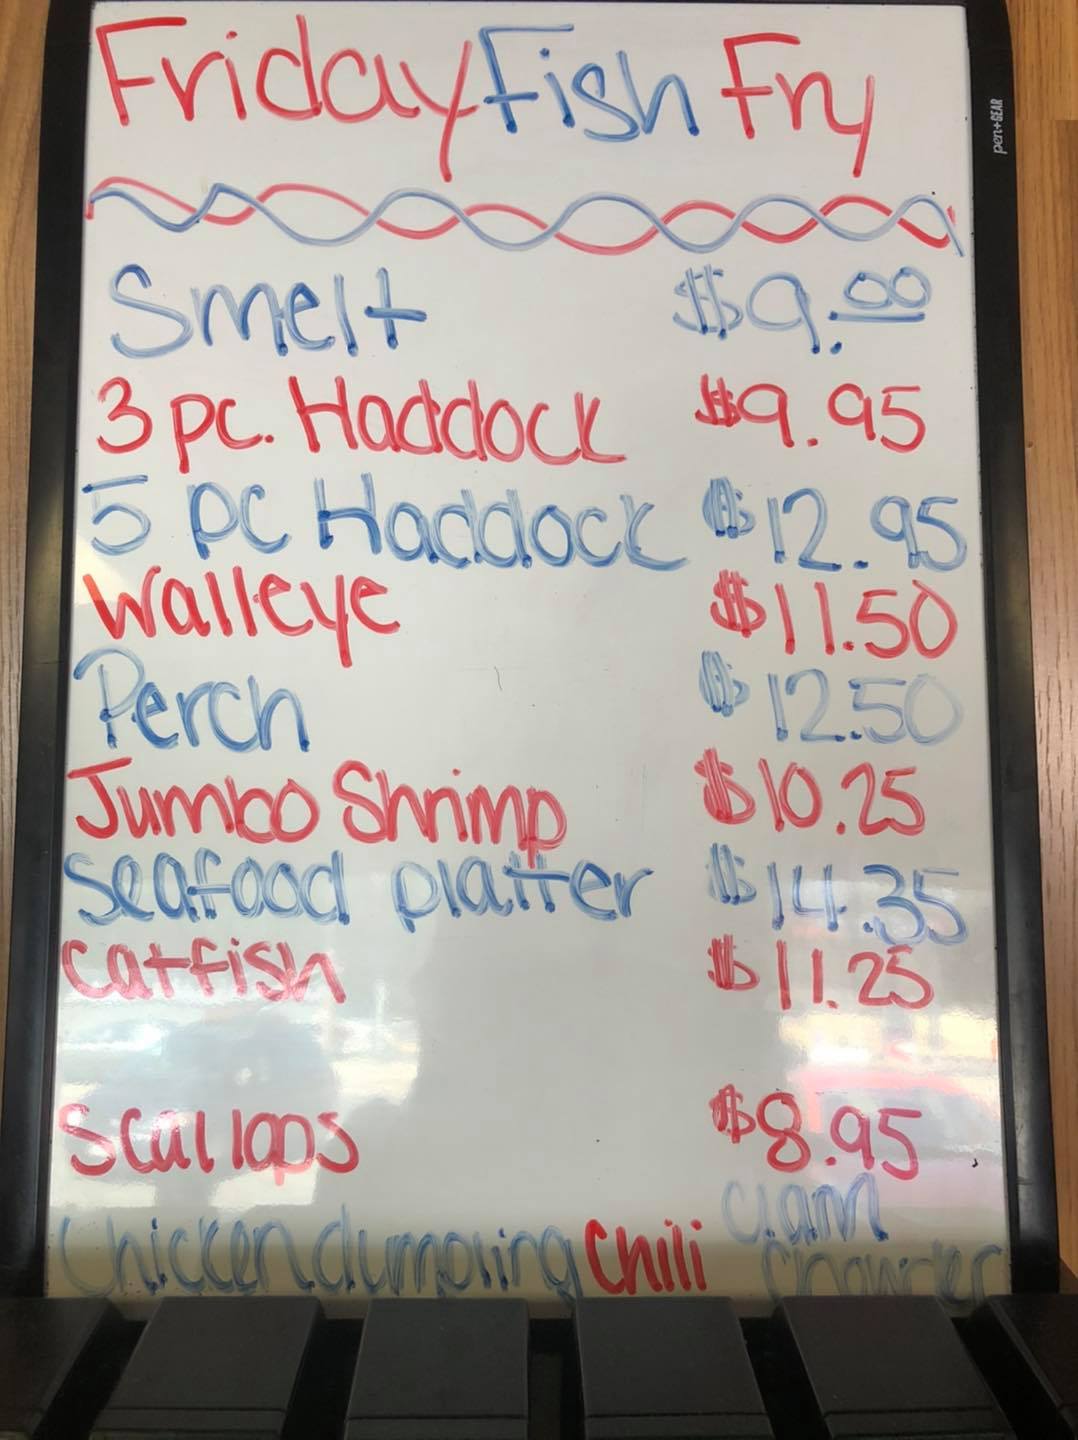 Friday Fish Fry
pen+GEAR
Smelt $9.00
3 pc. Haddock $9.95
5 pc Haddock $12.95
Walleye $11.50
Perch $12.50
Jumbo Shrimp $10.25
Seafood platter $14.35
Catfish $11.25
Scallops $8.95
Chicken dumpling Chili Clam Chowder